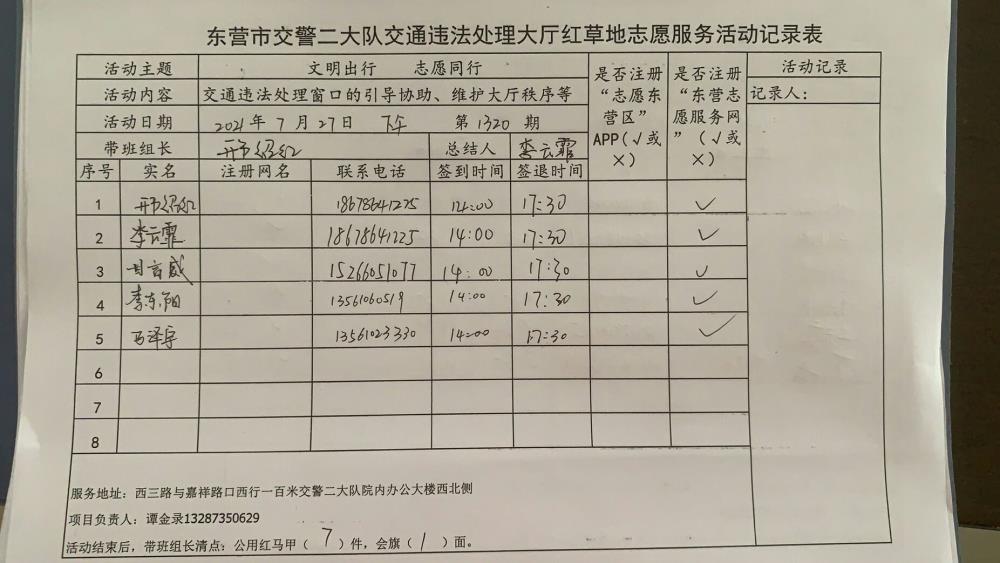 东营市交警二大队交通违法处理大厅红草地志愿服务活动记录表
活动主题 文明出行 志愿同行 是否注册“志愿东营区”APP(√或×) 是否注册“东营志愿服务网”(√或×) 活动记录
活动内容 交通违法处理窗口的引导协助、维护大厅秩序等 记录人:
活动日期 2021年7月27日 下午 第1320期
带班组长 邢绍红 总结人 李云霏
序号 实名 注册网名 联系电话 签到时间 签退时间
1 邢绍红 18678641225 14:00 17:30 √
2 李云霏 18678641225 14:00 17:30 √
3 15266051077 14:00 17:30 √
4 李东阳 13561060519 14:00 17:30 √
5 马泽宇 13561023330 14:00 17:30 √
6
7
8
服务地址：西三路与嘉祥路口西行一百米交警二大队院内办公大楼西北侧
项目负责人：谭金录13287350629
活动结束后，带班组长清点：公用红马甲（7）件，会旗（1）面。